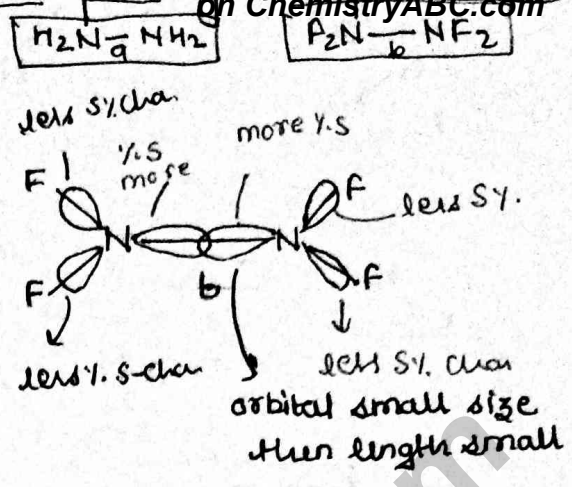 on ChemistryABC.com
H₂N—NH₂
a
F₂N—NF₂
b
less S% Cha.
more %S
%S
more
F
F
less S%.
N
N
b
F
F
less %. S-char
less S%. Char
orbital small size
then length small
m